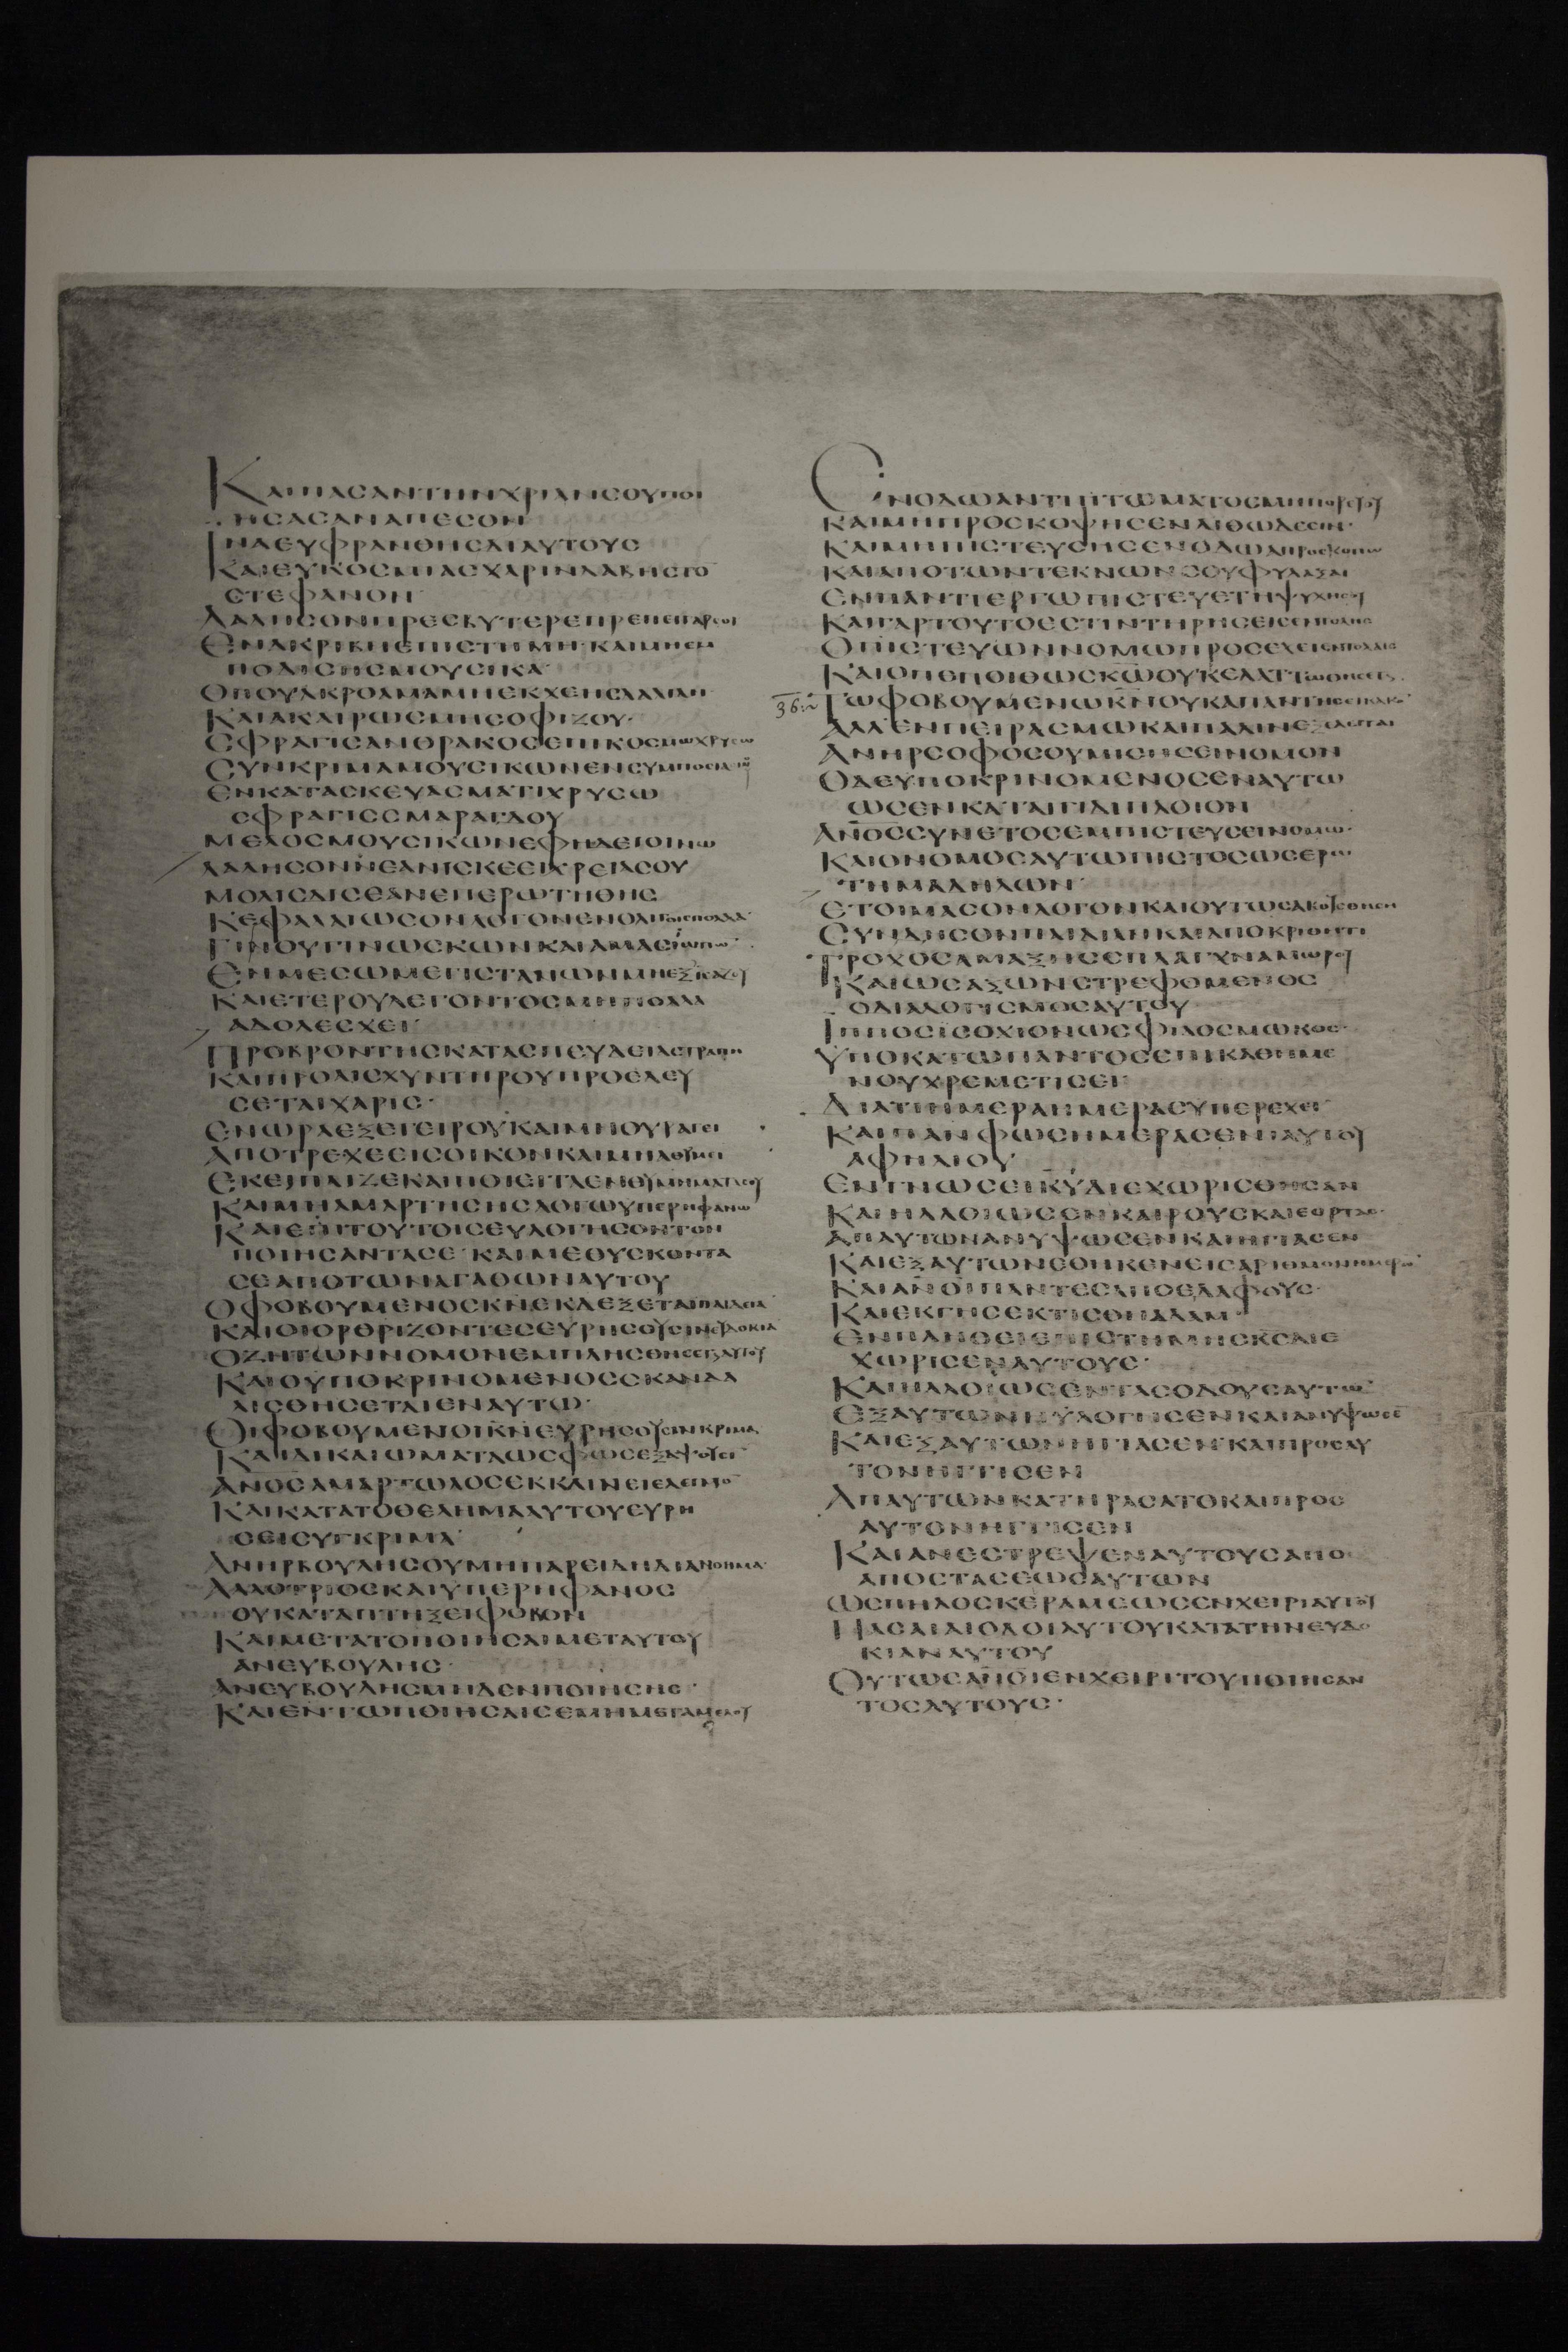 ΚΑΙΠΑΣΑΝΤΗΝΧΡΙΑΝΣΟΥΠΟΙ
ΗΣΑΣΑΝΑΠΕΣΟΝ
ΙΝΑΕΥΦΡΑΝΘΗΣΔΙΑΥΤΟΥΣ
ΚΑΙΕΥΚΟΣΜΙΑΣΧΑΡΙΝΛΑΒΗΣΤΟ̅
ΣΤΕΦΑΝΟΝ·
ΛΑΛΗΣΟΝΠΡΕΣΒΥΤΕΡΕΠΡΕΠΕΙΓΑΡΣΟΙ
ΕΝΑΚΡΙΒΗΕΠΙΣΤΗΜΗ·ΚΑΙΜΗΕΜ
ΠΟΔΙΣΗΣΜΟΥΣΙΚΑ·
ΟΠΟΥΑΚΡΟΑΜΑΜΗΕΚΧΕΗΣΛΑΛΙΑΝ·
ΚΑΙΑΚΑΙΡΩΣΜΗΣΟΦΙΖΟΥ·
ΣΦΡΑΓΙΣΑΝΘΡΑΚΟΣΕΠΙΚΟΣΜΩΧΡΥΣΩ
ΣΥΝΚΡΙΜΑΜΟΥΣΙΚΩΝΕΝΣΥΜΠΟΣΙΩ
ΕΝΚΑΤΑΣΚΕΥΑΣΜΑΤΙΧΡΥΣΩ
ΣΦΡΑΓΙΣΣΜΑΡΑΓΔΟΥ
ΜΕΛΟΣΜΟΥΣΙΚΩΝΕΦΗΔΕΙΟΙΝΩ
ΛΑΛΗΣΟΝΝΕΑΝΙΣΚΕΕΙΧΡΕΙΑΣΟΥ
ΜΟΛΙΣΔΙΣΕΑΝΕΠΕΡΩΤΗΘΗΣ
ΚΕΦΑΛΑΙΩΣΟΝΛΟΓΟΝΕΝΟΛΙΓΟΙΣΠΟΛΛΑ·
ΓΙΝΟΥΓΙΝΩΣΚΩΝΚΑΙΑΜΑΣΙΩΠΩ̅·
ΕΝΜΕΣΩΜΕΓΙΣΤΑΝΩΝΜΗΕΞΙΣΑΖΟΥ
ΚΑΙΕΤΕΡΟΥΛΕΓΟΝΤΟΣΜΗΠΟΛΛΑ
ΑΔΟΛΕΣΧΕΙ·
ΠΡΟΒΡΟΝΤΗΣΚΑΤΑΣΠΕΥΔΕΙΑΣΤΡΑΠΗ
ΚΑΙΠΡΟΑΙΣΧΥΝΤΗΡΟΥΠΡΟΕΛΕΥ
ΣΕΤΑΙΧΑΡΙΣ·
ΕΝΩΡΑΕΞΕΓΕΙΡΟΥΚΑΙΜΗΟΥΡΑΓΕΙ
ΑΠΟΤΡΕΧΕΕΙΣΟΙΚΟΝΚΑΙΜΗΡΑΘΥΜΕΙ
ΕΚΕΙΠΑΙΖΕΚΑΙΠΟΙΕΙΤΑΕΝΘΥΜΗΜΑΤΑΣΟΥ
ΚΑΙΜΗΑΜΑΡΤΗΣΗΣΛΟΓΩΥΠΕΡΗΦΑΝΩ
ΚΑΙΕΠΙΤΟΥΤΟΙΣΕΥΛΟΓΗΣΟΝΤΟΝ
ΠΟΙΗΣΑΝΤΑΣΕ·ΚΑΙΜΕΘΥΣΚΟΝΤΑ
ΣΕΑΠΟΤΩΝΑΓΑΘΩΝΑΥΤΟΥ
ΟΦΟΒΟΥΜΕΝΟΣΚ̅Ν̅ΕΚΔΕΞΕΤΑΙΠΑΙΔΕΙΑ̅
ΚΑΙΟΙΟΡΘΡΙΖΟΝΤΕΣΕΥΡΗΣΟΥΣΙΝΕΥΔΟΚΙΑ̅
ΟΖΗΤΩΝΝΟΜΟΝΕΜΠΛΗΣΘΗΣΕΤΑΙΑΥΤΟΥ
ΚΑΙΟΥΠΟΚΡΙΝΟΜΕΝΟΣΣΚΑΝΔΑ
ΛΙΣΘΗΣΕΤΑΙΕΝΑΥΤΩ·
ΟΙΦΟΒΟΥΜΕΝΟΙΚ̅Ν̅ΕΥΡΗΣΟΥΣΙΝΚΡΙΜΑ
ΚΑΙΔΙΚΑΙΩΜΑΤΑΩΣΦΩΣΕΞΑΨΟΥΣΙ
ΑΝ̅Ο̅Σ̅ΑΜΑΡΤΩΛΟΣΕΚΚΛΙΝΕΙΕΛΕΓΜΟ̅
ΚΑΙΚΑΤΑΤΟΘΕΛΗΜΑΑΥΤΟΥΕΥΡΗ
ΣΕΙΣΥΓΚΡΙΜΑ·
ΑΝΗΡΒΟΥΛΗΣΟΥΜΗΠΑΡΕΙΔΗΔΙΑΝΟΗΜΑ·
ΑΛΛΟΤΡΙΟΣΚΑΙΥΠΕΡΗΦΑΝΟΣ
ΟΥΚΑΤΑΠΤΗΞΕΙΦΟΒΟΝ
ΚΑΙΜΕΤΑΤΟΠΟΙΗΣΑΙΜΕΤΑΥΤΟΥ
ΑΝΕΥΒΟΥΛΗΣ·
ΑΝΕΥΒΟΥΛΗΣΜΗΔΕΝΠΟΙΗΣΗΣ·
ΚΑΙΕΝΤΩΠΟΙΗΣΑΙΣΕΜΗΜΕΤΑΜΕΛΟΥ
ΕΝΟΔΩΑΝΤΙΠΤΩΜΑΤΟΣΜΗΠΟΡΕΥΟΥ
ΚΑΙΜΗΠΡΟΣΚΟΨΗΣΕΝΛΙΘΩΔΕΣΙΝ·
ΚΑΙΜΗΠΙΣΤΕΥΣΗΣΕΝΟΔΩΑΠΡΟΣΚΟΠΩ
ΚΑΙΑΠΟΤΩΝΤΕΚΝΩΝΣΟΥΦΥΛΑΞΑΙ
ΕΝΠΑΝΤΙΕΡΓΩΠΙΣΤΕΥΕΤΗΨΥΧΗΣΟΥ
ΚΑΙΓΑΡΤΟΥΤΟΕΣΤΙΝΤΗΡΗΣΕΙΣΕΝΤΟΛΗΣ
ΟΠΙΣΤΕΥΩΝΝΟΜΩΠΡΟΣΕΧΕΙΕΝΤΟΛΑΙΣ
ΚΑΙΟΠΕΠΟΙΘΩΣΚ̅Ω̅ΟΥΚΕΛΑΤΤΩΘΗΣΕΤΑΙ·
ΤΩΦΟΒΟΥΜΕΝΩΚ̅Ν̅ΟΥΚΑΠΑΝΤΗΣΕΙΚΑΚΟ̅
ΑΛΛΕΝΠΕΙΡΑΣΜΩΚΑΙΠΑΛΙΝΕΞΕΛΕΙΤΑΙ
ΑΝΗΡΣΟΦΟΣΟΥΜΙΣΗΣΕΙΝΟΜΟΝ
ΟΔΕΥΠΟΚΡΙΝΟΜΕΝΟΣΕΝΑΥΤΩ
ΩΣΕΝΚΑΤΑΙΓΙΔΙΠΛΟΙΟΝ
ΑΝ̅Ο̅Σ̅ΣΥΝΕΤΟΣΕΜΠΙΣΤΕΥΣΕΙΝΟΜΩ·
ΚΑΙΟΝΟΜΟΣΑΥΤΩΠΙΣΤΟΣΩΣΕΡΩ
ΤΗΜΑΔΗΛΩΝ·
ΕΤΟΙΜΑΣΟΝΛΟΓΟΝΚΑΙΟΥΤΩΣΑΚΟΥΣΘΗΣΗ
ΣΥΝΔΗΣΟΝΠΑΙΔΙΑΝΚΑΙΑΠΟΚΡΙΘΗΤΙ
ΤΡΟΧΟΣΑΜΑΞΗΣΣΠΛΑΓΧΝΑΜΩΡΟΥ
ΚΑΙΩΣΑΞΩΝΣΤΡΕΦΟΜΕΝΟΣ
ΟΔΙΑΛΟΓΙΣΜΟΣΑΥΤΟΥ
ΙΠΠΟΣΙΣΟΧΙΟΝΩΣΦΙΛΟΣΜΩΚΟΣ·
ΥΠΟΚΑΤΩΠΑΝΤΟΣΕΠΙΚΑΘΗΜΕ
ΝΟΥΧΡΕΜΕΤΙΣΕΙ·
ΔΙΑΤΙΗΜΕΡΑΗΜΕΡΑΣΥΠΕΡΕΧΕΙ·
ΚΑΙΠΑΝΦΩΣΗΜΕΡΑΣΕΝΙΑΥΤΟΥ
ΑΦΗΛΙΟΥ·
ΕΝΓΝΩΣΕΙΚ̅Υ̅ΔΙΕΧΩΡΙΣΘΗΣΑΝ
ΚΑΙΗΛΛΟΙΩΣΕΝΚΑΙΡΟΥΣΚΑΙΕΟΡΤΑΣ·
ΑΠΑΥΤΩΝΑΝΥΨΩΣΕΝΚΑΙΗΓΙΑΣΕΝ
ΚΑΙΕΞΑΥΤΩΝΕΘΗΚΕΝΕΙΣΑΡΙΘΜΟΝΗΜΕΡΩ̅
ΚΑΙΑΝ̅Ο̅Ι̅ΠΑΝΤΕΣΑΠΟΕΔΑΦΟΥΣ·
ΚΑΙΕΚΓΗΣΕΚΤΙΣΘΗΑΔΑΜ·
ΕΝΠΛΗΘΕΙΕΠΙΣΤΗΜΗΣΚ̅Σ̅ΔΙΕ
ΧΩΡΙΣΕΝΑΥΤΟΥΣ·
ΚΑΙΗΛΛΟΙΩΣΕΝΤΑΣΟΔΟΥΣΑΥΤΩ̅
ΕΞΑΥΤΩΝΗΥΛΟΓΗΣΕΝΚΑΙΑΝΥΨΩΣΕ̅
ΚΑΙΕΞΑΥΤΩΝΗΓΙΑΣΕΝ·ΚΑΙΠΡΟΣΑΥ
ΤΟΝΗΓΓΙΣΕΝ
ΑΠΑΥΤΩΝΚΑΤΗΡΑΣΑΤΟΚΑΙΠΡΟΣ
ΑΥΤΟΝΗΓΓΙΣΕΝ
ΚΑΙΑΝΕΣΤΡΕΨΕΝΑΥΤΟΥΣΑΠΟ
ΑΠΟΣΤΑΣΕΩΣΑΥΤΩΝ
ΩΣΠΗΛΟΣΚΕΡΑΜΕΩΣΕΝΧΕΙΡΙΑΥΤΟΥ
ΠΑΣΑΙΑΙΟΔΟΙΑΥΤΟΥΚΑΤΑΤΗΝΕΥΔΟ
ΚΙΑΝΑΥΤΟΥ
ΟΥΤΩΣΑΝ̅Ο̅Ι̅ΕΝΧΕΙΡΙΤΟΥΠΟΙΗΣΑΝ
ΤΟΣΑΥΤΟΥΣ·